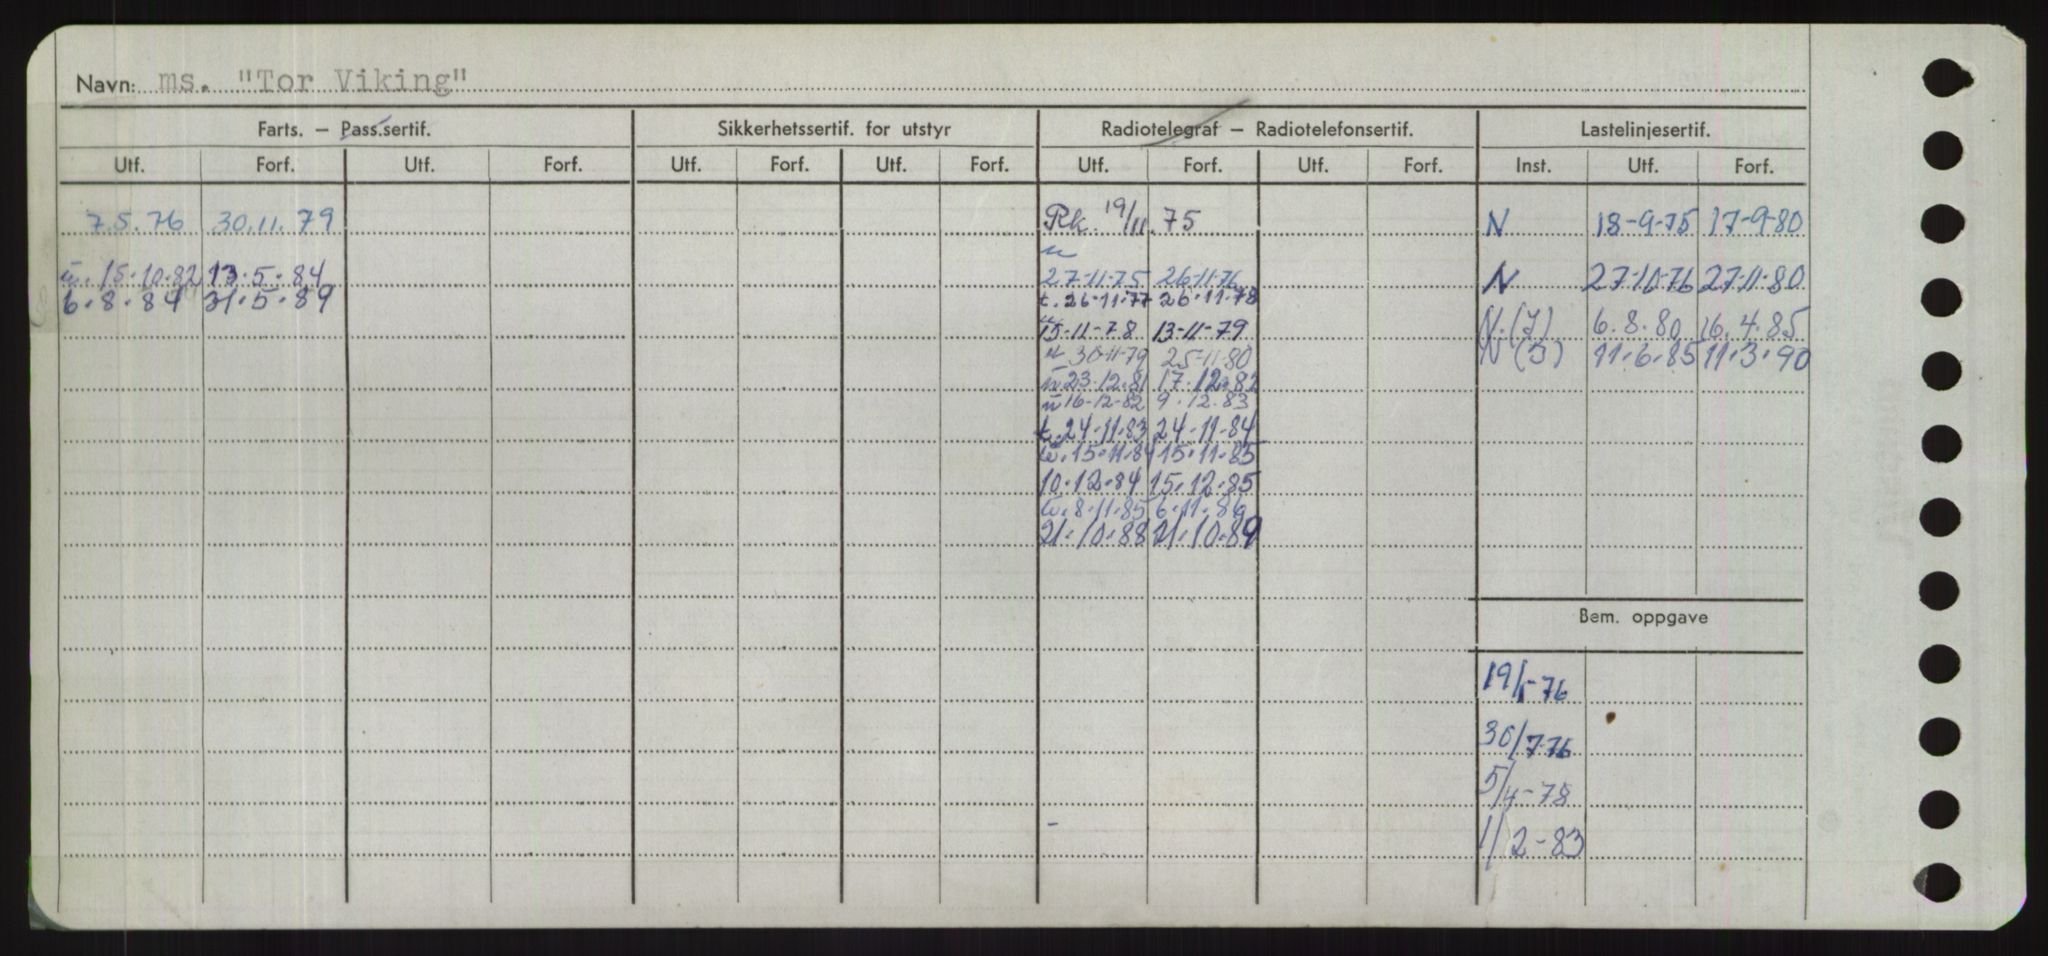 Navn: ms. "Tor Viking"
Farts. – Pass.sertif. Sikkerhetssertif. for utstyr Radiotelegraf – Radiotelefonsertif. Lastelinjesertif.
Utf. Forf. Utf. Forf. Utf. Forf. Utf. Forf. Utf. Forf. Utf. Forf. Inst. Utf. Forf.
7.5.76 30.11.79 Rk. 19/11.75 N 18-9-75 17-9-80
ū. 15.10.82 13.5.84 27-11-75 26-11-76 N 27-10-76 27-11-80
6.8.84 31.5.89 t. 26-11-77 26-11-78
15-11-78 13-11-79 N. 6.8.80 16.4.85
30-11-79 25-11-80 N 11.6.85 11.3.90
ū 23.12.81 17.12.82
ū 16-12-82 9.12.83
t. 24.11.83 24.11.84
ū. 15.11.84 15.11.85
10.12.84 15.12.85
ū. 8.11.85 6.11.86
21.10.88 21.10.89
Bem. oppgave
19/1-76
30/7-76
5/4-78
1/2-83